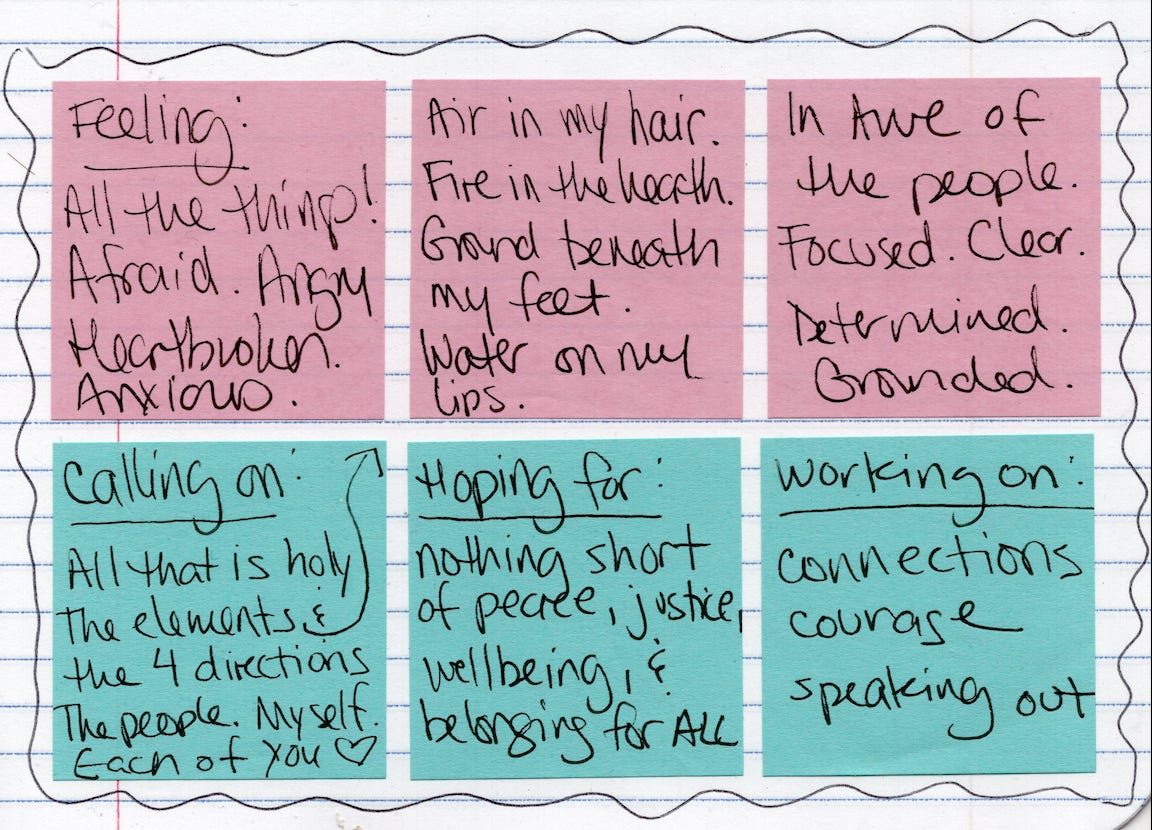 Feeling:
All the things!
Afraid. Angry
Heartbroken.
Anxious.
Air in my hair.
Fire in the hearth.
Ground beneath
my feet.
Water on my
lips.
In Awe of
the people.
Focused. Clear.
Determined.
Grounded.
Calling on:
All that is holy
The elements &
the 4 directions
The people. Myself.
Each of you ♡
Hoping for:
nothing short
of peace, justice,
wellbeing, &
belonging for ALL
Working on:
connections
courage
speaking out